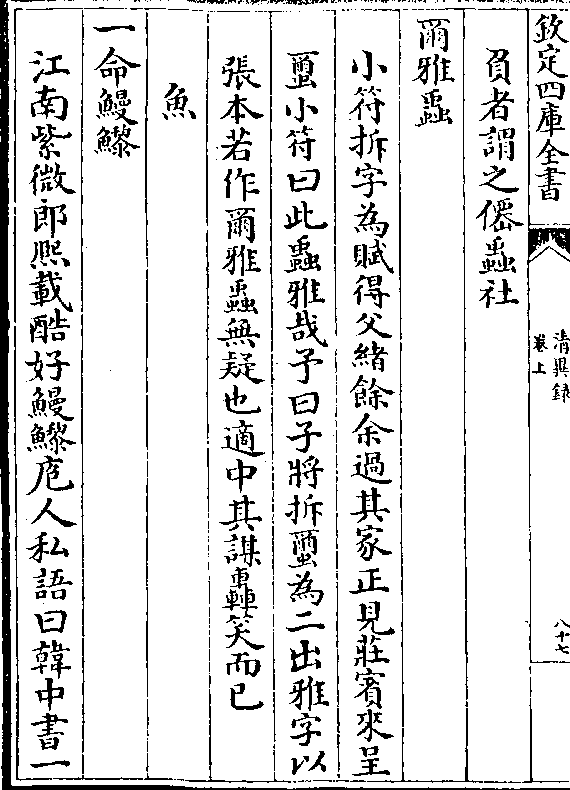 欽定四庫全書
清異録
卷上
八十七
負者謂之僊蟲社
爾雅蟲
小符拆字為賦得父緒餘余過其家正見莊賓來呈
蠒小符曰此蟲雅哉予曰子將拆蠒為二出雅字以
張本若作爾雅蟲無疑也適中其謀轟笑而已
魚
一命鰻鱺
江南紫微郎熈載酷好鰻鱺庖人私語曰韓中書一